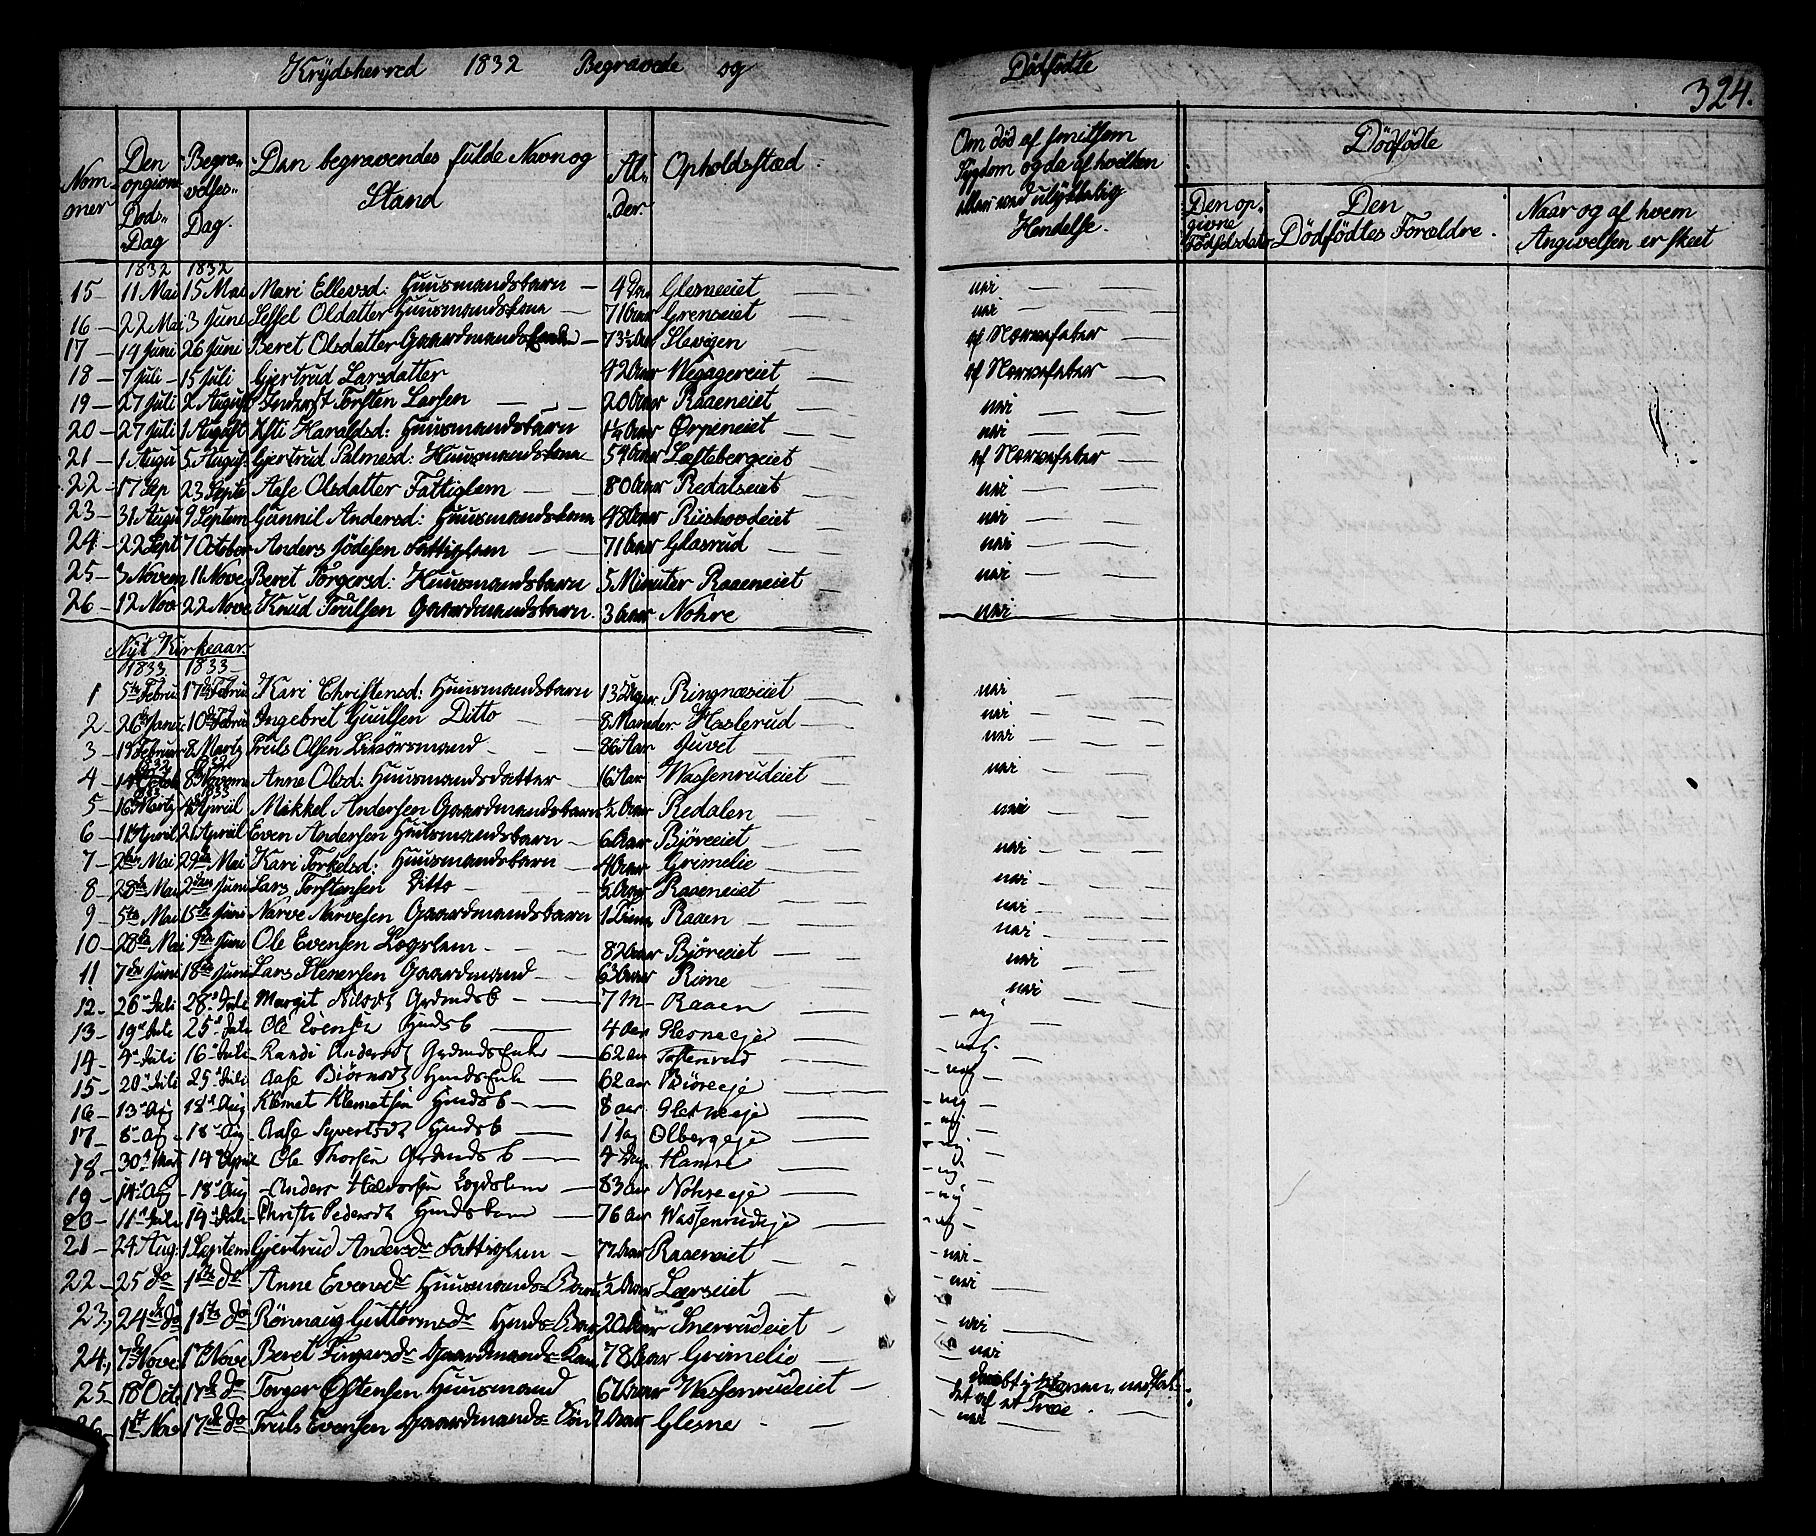 Krydsherred 1832 Begravede og Dödfödte
324.
Nommer
Den opgivne Död-Dag
Begravelses-Dag.
Den begravendes fulde Navn og Stand
Alder.
Opholdsstæd
Om död af smitsom Sygdom og da af hvilken eller ved ulykkelig Hendelse.
Dödfödte
Den opgivne Födselsdato
Den Dödfödtes Forældre.
Naar og af hvem Angivelsen er skeet
1832 1832
15 - 11 Mai 15 Mai Mari Ellevsd: Huusmandsbarn - 4 Glesneeiet nei
16 - 22 Mai 3 Juni Sessel Oldatter Huusmandskone 71 Aar Grenseiet nei
17 - 14 Juni 26 Juni Beret Olsdatter Gaardmands 73½ Aar Slevigen af Nervefeber
18 - 7 Juli - 15 Juli Gjertrud Larsdatter 42 Aar af Nervefeber
19 - 27 Juli 2 August Inderst Torsten Larsen 20 Aar Raaeneiet nei
20 - 27 Juli 1 August Haraldsd: Huusmandsbarn Aar Ørpeneiet nei
21 - 1 Augu 5 Augus: Gjertrud Palmesd: Huusmandskone 54 Aar Loftebergeiet af Nervefeber
22 - 17 Sep 23 Septe Aase Olsdatter Fattiglem 80 Aar Redalseiet nei
23 - 31 Augu 9 Septem Gunnil Andersd: Huusmandskone 48 Aar Riishovdeiet nei
24 - 22 Sept 7 October Anders Fattiglem 71 Aar Glasrud nei
25 - 3 Novem 11 Nove Beret Torgersd: Huusmandsbarn 5 Minuter Raaeneiet nei
26 - 12 Nov 22 Nove Knud Trulsen Gaardmandsbarn. 3 Aar Nohre nei
Nyt Kirkeaar
1833 1833
1 5te Febru 17de Febru Kari Christensd: Huusmandsbarn 13 Dager Ringnæseiet nei
2 26 Janu: 10de Febru Ingebret Guulsen Ditto 8 Maneder Haslerud nei
3 - 19 Februar 8 Martz Truls Olsen 86 Aar Juvet nei
4 - 14 8 Novem Anne Olsd: Huusmandsdatter 16 Aar Wassenrudeiet nei
5 - 16 Martz Apriil Mikkel Andersen Gaardmandsbarn ½ Aar Redalen nei
6 - 11 April 21 Apriil Even Andersen Huusmandsbarn 6 Aar Björeeiet nei
7 - 2den Mai 29de Mai Kari Torkelsd: Huusmandsbarn 4 Aar Grimelie nei
8 28de Mai 2den Juni Lars Torstensen Ditto ½ Aar Raaeneiet nei
9 5te Mai 15te Juni Narve Narvesen Gaardmandsbarn 1 Time Raaen nei
10 - 28de Mai 9de Juni Ole Evensen Logslem 82 Aar Björeeiet nei
11 7de Juni 18de Juni Lars Stenersen Gaardmand 63 Aar Rime nei
12. 26 Juli 28 Juli Margit Nilsdt Grdmdsb 7 M Raaen nej
13 - 19 Juli 25 Juli Ole Evensen Hmdsb 4 Aar Glesneeje nej
14 - 4 Juli 16 Juli Randi Andersdt Grdmds Enke 62 aar Tostenrud nej
15 - 20 Juli 25 Juli Aase Biörnsdt Hmds Enke 62 aar Biöreeje nej
16 - 13 Aug 18 Aug Klemet Klemetsen Hmdsb 8 aar Glesneeje nej
17 - 8 Aug 18 Aug Aase Syvertsdt Hmdsb 1 Dag Olbergeje nej
18 - 30 Mart 14 April Ole Thorsen Grdmdsb 4 Dag Hamre nej
19 - 14 Aug - 18 Aug Anders Halvorsen Logdslem 83 aar Nohreeje nej
20 - 11 Juli 14 Juli Christi Pedersdt Hmdskone 76 aar Wassenrudeje nej
21 - 24 Aug: 1 Septem Gjertrud Andersdr Fattiglem 77 Aar Raaeneiet nei
22 - 25 do 1ste do Anne Evensdr Huusmands Barn ½ Aar Lærseiet nei
23, 24de do 1ste do Rönnaug Guttormsdr Hmds Barn 20 Aar Snerrudeiet nei
24., 7de Nove 17 Nove Beret Finparsdr Gaardmands Kone 78 Aar Grimelie nei
25. 18 Oct 17de do Torger Østensen Huusmand 67 Aar Wassenrudeiet af et Træe
26 1st Nov 17de do Truls Evensen Gaardmands Sön Aar Glesne nei